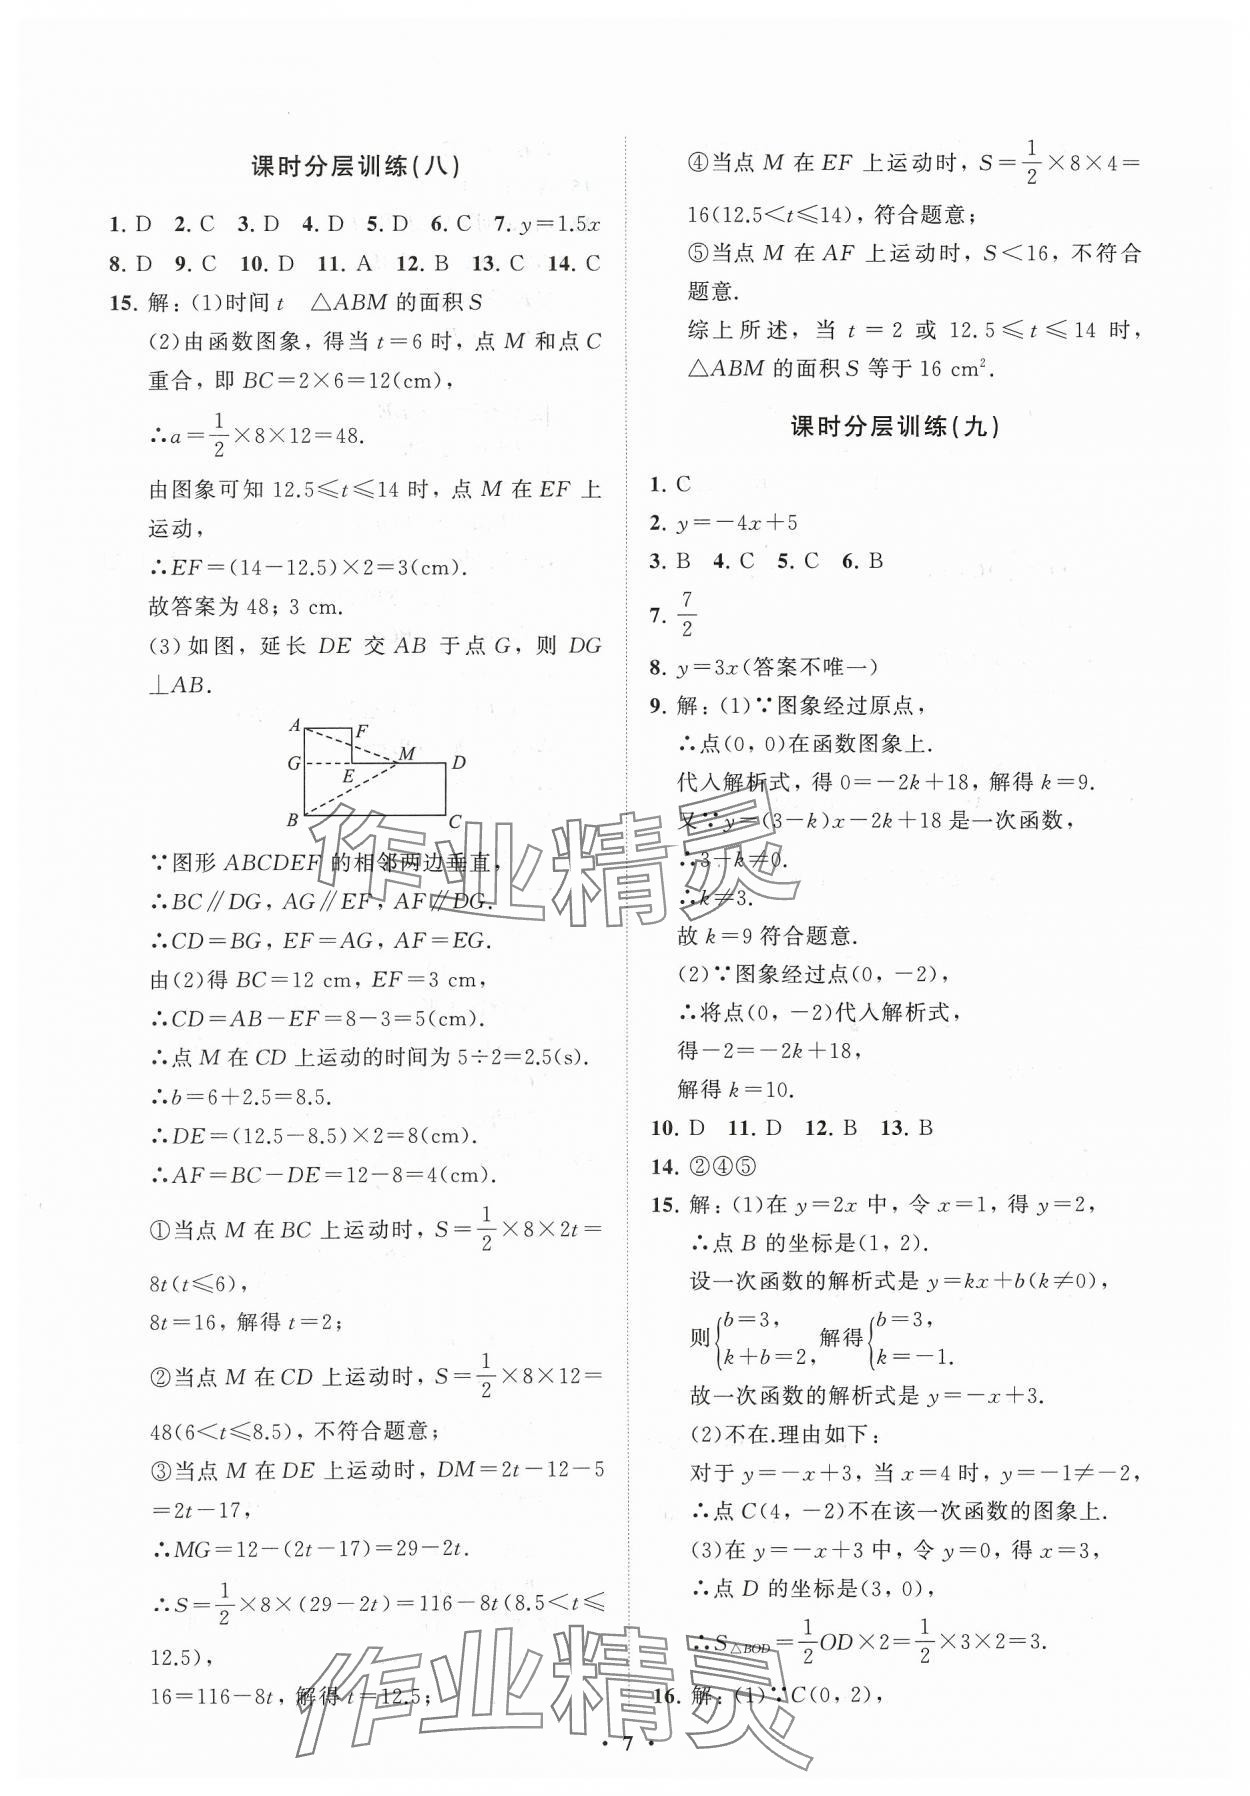 课时分层训练(八)
1. D 2. C 3. D 4. D 5. D 6. C 7. y=1.5x
8. D 9. C 10. D 11. A 12. B 13. C 14. C
15. 解:(1)时间 t △ABM 的面积 S
(2)由函数图象，得当 t=6 时，点 M 和点 C
重合，即 BC=2×6=12(cm)，
∴a=1/2×8×12=48.
由图象可知 12.5≤t≤14 时，点 M 在 EF 上
运动，
∴EF=(14-12.5)×2=3(cm).
故答案为 48; 3 cm.
(3)如图，延长 DE 交 AB 于点 G，则 DG
⊥AB.
A F
G E M D
B C
∵图形 ABCDEF 的相邻两边垂直，
∴BC∥DG，AG∥EF，AF∥DG.
∴CD=BG，EF=AG，AF=EG.
由(2)得 BC=12 cm，EF=3 cm，
∴CD=AB-EF=8-3=5(cm).
∴点 M 在 CD 上运动的时间为 5÷2=2.5(s).
∴b=6+2.5=8.5.
∴DE=(12.5-8.5)×2=8(cm).
∴AF=BC-DE=12-8=4(cm).
①当点 M 在 BC 上运动时，S=1/2×8×2t=
8t(t≤6)，
8t=16，解得 t=2;
②当点 M 在 CD 上运动时，S=1/2×8×12=
48(6<t≤8.5)，不符合题意;
③当点 M 在 DE 上运动时，DM=2t-12-5
=2t-17，
∴MG=12-(2t-17)=29-2t.
∴S=1/2×8×(29-2t)=116-8t(8.5<t≤
12.5)，
16=116-8t，解得 t=12.5;
④当点 M 在 EF 上运动时，S=1/2×8×4=
16(12.5<t≤14)，符合题意;
⑤当点 M 在 AF 上运动时，S<16，不符合
题意.
综上所述，当 t=2 或 12.5≤t≤14 时，
△ABM 的面积 S 等于 16 cm².
课时分层训练(九)
1. C
2. y=-4x+5
3. B 4. C 5. C 6. B
7. 7/2
8. y=3x(答案不唯一)
9. 解:(1)∵图象经过原点，
∴点(0，0)在函数图象上.
代入解析式，得 0=-2k+18，解得 k=9.
又∵y=(3-k)x-2k+18 是一次函数，
∴3-k≠0.
∴k≠3.
故 k=9 符合题意.
(2)∵图象经过点(0，-2)，
∴将点(0，-2)代入解析式，
得-2=-2k+18，
解得 k=10.
10. D 11. D 12. B 13. B
14. ②④⑤
15. 解:(1)在 y=2x 中，令 x=1，得 y=2，
∴点 B 的坐标是(1，2).
设一次函数的解析式是 y=kx+b(k≠0)，
则{b=3，k+b=2，解得{b=3，k=-1.
故一次函数的解析式是 y=-x+3.
(2)不在.理由如下:
对于 y=-x+3，当 x=4 时，y=-1≠-2，
∴点 C(4，-2)不在该一次函数的图象上.
(3)在 y=-x+3 中，令 y=0，得 x=3，
∴点 D 的坐标是(3，0)，
∴S△BOD=1/2OD×2=1/2×3×2=3.
16. 解:(1)∵C(0，2)，
• 7 •
作业精灵
作业精灵